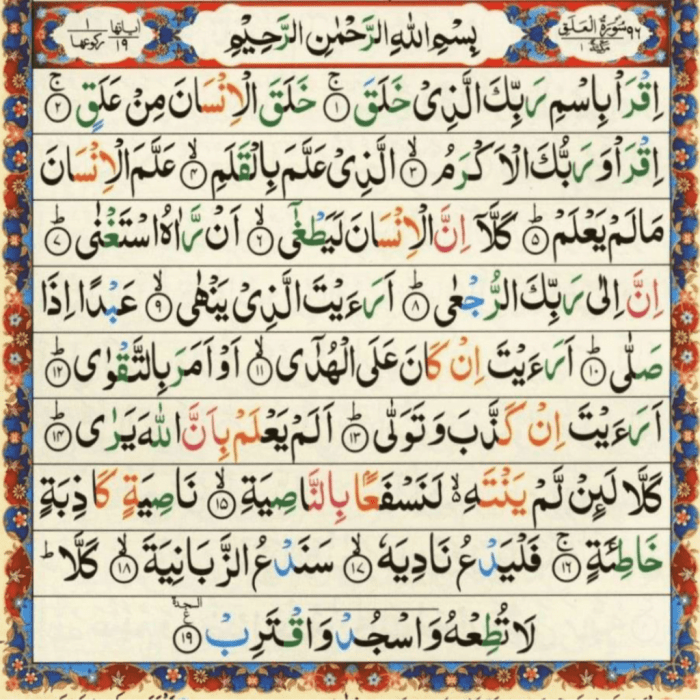 ٩٦ سُوْرَةُ الْعَلَقِ مَكِّيَّةٌ ١ بِسْمِ اللهِ الرَّحْمٰنِ الرَّحِيْمِ اٰيَاتُهَا ١٩ رُكُوْعُهَا ١
اِقْرَاْ بِاسْمِ رَبِّكَ الَّذِىْ خَلَقَ ۚ‏﴿۱﴾ خَلَقَ الْاِنْسَانَ مِنْ عَلَقٍ ۚ‏﴿۲﴾
اِقْرَاْ وَ رَبُّكَ الْاَكْرَمُ ۙ‏﴿۳﴾ الَّذِىْ عَلَّمَ بِالْقَلَمِ ۙ‏﴿۴﴾ عَلَّمَ الْاِنْسَانَ
مَا لَمْ يَعْلَمْ ؕ‏﴿۵﴾ كَلَّاۤ اِنَّ الْاِنْسَانَ لَيَطْغٰٓى ۙ‏﴿۶﴾ اَنْ رَّاٰهُ اسْتَغْنٰى ؕ‏﴿۷﴾
اِنَّ اِلٰى رَبِّكَ الرُّجْعٰى ؕ‏﴿۸﴾ اَرَءَيْتَ الَّذِىْ يَنْهٰى ۙ‏﴿۹﴾ عَبْدًا اِذَا
صَلّٰى ؕ‏﴿۱۰﴾ اَرَءَيْتَ اِنْ كَانَ عَلَى الْهُدٰٓى ۙ‏﴿۱۱﴾ اَوْ اَمَرَ بِالتَّقْوٰى ؕ‏﴿۱۲﴾
اَرَءَيْتَ اِنْ كَذَّبَ وَ تَوَلّٰى ؕ‏﴿۱۳﴾ اَلَمْ يَعْلَمْ بِاَنَّ اللّٰهَ يَرٰى ؕ‏﴿۱۴﴾
كَلَّا لَٮِٕنْ لَّمْ يَنْتَهِ ۙ لَنَسْفَعًۢا بِالنَّاصِيَةِ ۙ‏﴿۱۵﴾ نَاصِيَةٍ كَاذِبَةٍ
خَاطِئَةٍ ۚ‏﴿۱۶﴾ فَلْيَدْعُ نَادِيَهٗ ۙ‏﴿۱۷﴾ سَنَدْعُ الزَّبَانِيَةَ ۙ‏﴿۱۸﴾ كَلَّا ؕ
لَا تُطِعْهُ وَاسْجُدْ وَاقْتَرِبْ ‏﴿۱۹﴾ السجدة